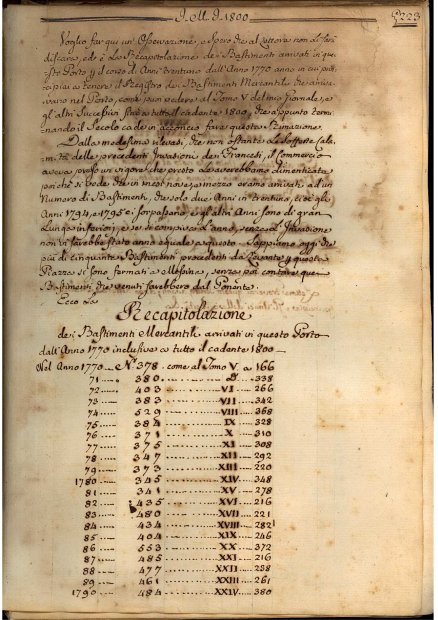 J. M. J. 1800
223
Voglio far qui un' Osservazione, e spero che al Lettore non
, ed è la Recapitolazione de' Bastimenti arrivati in que=
sto Porto nel corso di Anni Trentuno dall'Anno 1770 in cui prin=
cipiai a tenere il Registro de' Bastimenti Mercantili che arriva=
vano nel Porto, come può vedersi al Tomo V del mio Giornale, e
gli altri Successivi sino a tutto il cadente 1800, che appunto termi=
nando il Secolo cade in acconcio fare questa
Dalla medesima rilevasi, che non ostante le sofferte Cala=
mità delle precedenti Invasioni de' Francesi, il Commercio
aveva preso un vigore che presto le averebbono dimenticate
poiché si vede che in mesi nove, e mezzo erano arrivati ad un
Numero di Bastimenti, che solo due Anni in Trentuno, cioè gli
Anni 1794, e 1795 ci sorpassano, e gli altri Anni sono di gran
Lunga inferiori, e se si compiva l'anno, senza l'Invasione
non vi sarebbe stato anno eguale a questo. Sappiamo oggi che
più di cinquanta Bastimenti procedenti da Levante per questa
Piazza si sono fermati a Messina, senza poi contare que'
Bastimenti che venuti sarebbero dal Ponente.
Ecco la
Recapitolazione
de' Bastimenti Mercantili arrivati in questo Porto
dall'Anno 1770 inclusive a tutto il cadente 1800
Nel Anno 1770 N.º 378 come al Tomo V a 166
71 380 D.º 338
72 403 VI 266
73 383 VII 342
74 529 VIII 368
75 384 IX 328
76 371 X 310
77 375 XI 308
78 347 XII 292
79 373 XIII 220
1780 345 XIV 348
81 341 XV 278
82 435 XVI 216
83 480 XVII 221
84 434 XVIII 282
85 404 XIX 246
86 553 XX 372
87 485 XXI 216
88 477 XXII 238
89 461 XXIII 261
1790 484 XXIV 380